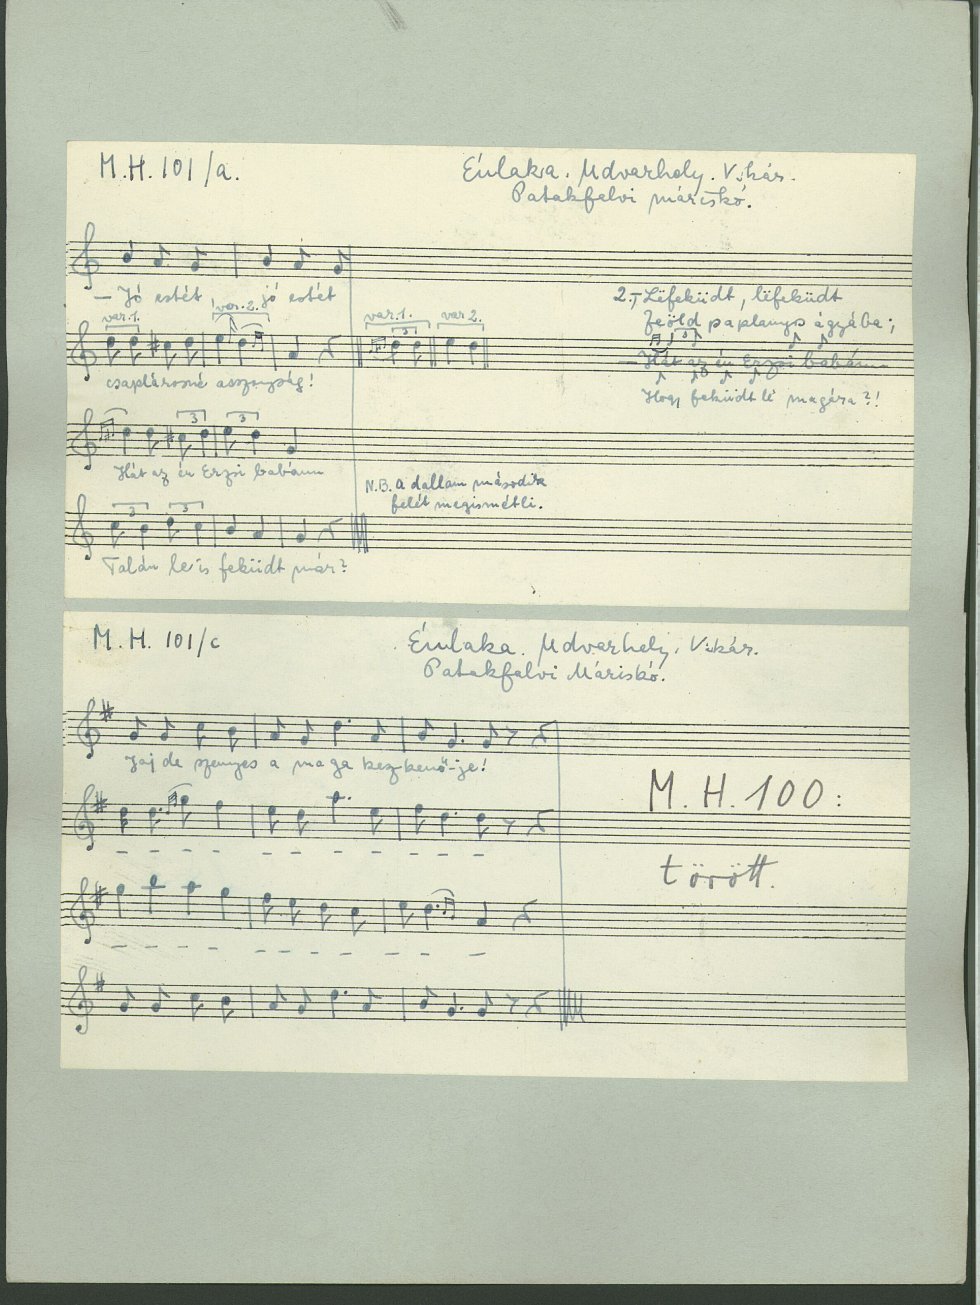 M.H. 101/a.
Énlaka. Udvarhely. Vikár.
Patakfalvi máriskó.
— Jó estét jó estét
var.1. var.2.
csaplárosné asszonyság!
var.1. var 2.
3
2. - Lëfeküdt, lëfeküdt
feöld paplanyos ágyába;
3
— Hát az én Erzsi babám
Hogy feküdt lë magára?!
3 3
Hát az én Erzsi babám
N.B. A dallam második
felét megismétli.
3 3
Talán le is feküdt már?
M.H. 101/c
Énlaka. Udvarhely. Vikár.
Patakfalvi Máriskó.
Jaj de szennyes a maga kezkenő-je!
M.H. 100:
törött.